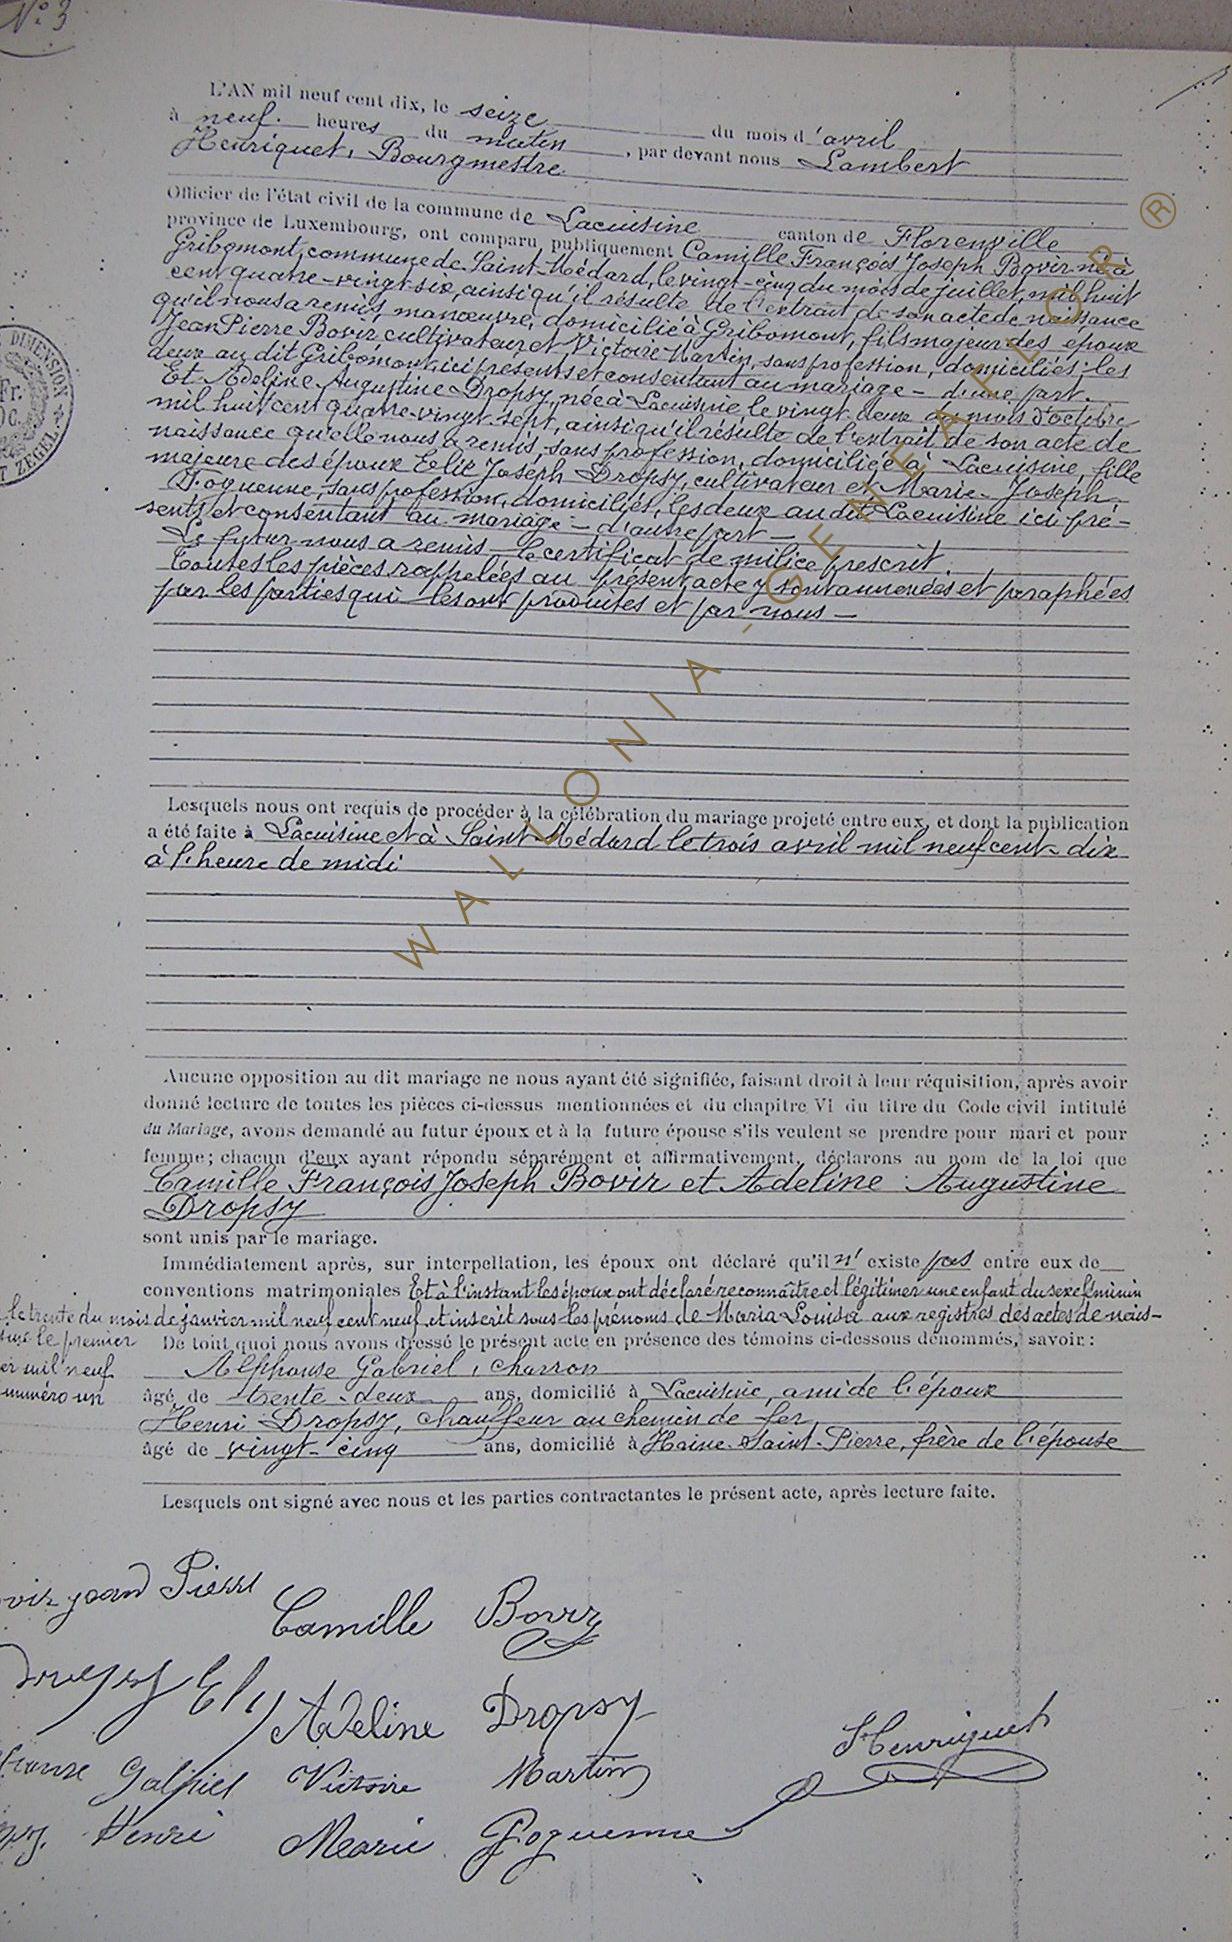 N° 3
L'AN mil neuf cent dix, le seize du mois d'avril
à neuf heures du matin, par devant nous Lambert
Henriquet, Bourgmestre
Officier de l'état civil de la commune de Lacuisine canton de Florenville
province de Luxembourg, ont comparu publiquement Camille François Joseph Bovir né à
Gribomont, commune de Saint-Médard, le vingt-cinq du mois de juillet, mil huit
cent quatre-vingt-six, ainsi qu'il résulte de l'extrait de son acte de naissance
qu'il nous a remis, manœuvre, domicilié à Gribomont, fils majeur des époux
Jean Pierre Bovir, cultivateur et Victoire Martin, sans profession, domiciliés, les
deux au dit Gribomont, ici présents et consentant au mariage - d'une part.
Et Adeline Augustine Dropsy, née à Lacuisine le vingt deux du mois d'octobre
mil huit cent quatre-vingt-sept, ainsi qu'il résulte de l'extrait de son acte de
naissance qu'elle nous a remis, sans profession, domiciliée à Lacuisine, fille
majeure des époux Elie Joseph Dropsy, cultivateur et Marie-Joseph
Goguenne, sans profession, domiciliés, les deux au dit Lacuisine ici pré-
sents et consentant au mariage - d'autre part -
Le futur nous a remis le certificat de milice prescrit.
Toutes les pièces rappelées au présent acte y sont annexées et paraphées
par les parties qui les ont produites et par nous -
Lesquels nous ont requis de procéder à la célébration du mariage projeté entre eux, et dont la publication
a été faite à Lacuisine et à Saint-Médard le trois avril mil neuf cent-dix
à l'heure de midi
Aucune opposition au dit mariage ne nous ayant été signifiée, faisant droit à leur réquisition, après avoir
donné lecture de toutes les pièces ci-dessus mentionnées et du chapitre VI du titre du Code civil intitulé
du Mariage, avons demandé au futur époux et à la future épouse s'ils veulent se prendre pour mari et pour
femme; chacun d'eux ayant répondu séparément et affirmativement, déclarons au nom de la loi que
Camille François Joseph Bovir et Adeline Augustine
Dropsy
sont unis par le mariage.
Immédiatement après, sur interpellation, les époux ont déclaré qu'il n'existe pas entre eux de
conventions matrimoniales Et à l'instant les époux ont déclaré reconnaître et légitimer une enfant du sexe féminin
le trente du mois de janvier mil neuf cent neuf et inscrit sous les prénoms de Maria Louisa aux registres des actes de nais-
le premier
er mil neuf
numéro un
De tout quoi nous avons dressé le présent acte en présence des témoins ci-dessous dénommés, savoir :
Alphonse Gabriel, charron
âgé de trente-deux ans, domicilié à Lacuisine, ami de l'époux
Henri Dropsy, chauffeur au chemin de fer,
âgé de vingt-cinq ans, domicilié à Haine-Saint-Pierre, frère de l'épouse
Lesquels ont signé avec nous et les parties contractantes le présent acte, après lecture faite.
ovir jean Pierre
Camille Bovir
Dropsy Ely
Adeline Dropsy
Henriquet
Gabriel
Victoire Martin
Henri
Marie Goguenne
DIMENSION
Fr.
ZEGEL
WALLONIA-GENEALOR ®